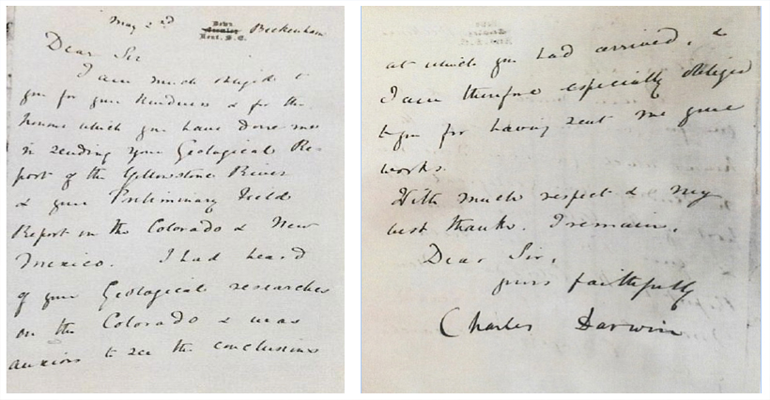 May 2nd
Down
Beckenham
Kent. S.E.
Dear Sir
I am much obliged to
you for your kindness & for the
honour which you have done me
in sending your Geological Re-
port of the Yellowstone River
& your Preliminary Field
Report on the Colorado & New
Mexico. I had heard
of your Geological researches
on the Colorado & was
anxious to see the conclusions
at which you had arrived, &
I am therefore especially obliged
to you for having sent me your
works.
With much respect & my
best thanks. I remain.
Dear Sir,
yours faithfully
Charles Darwin